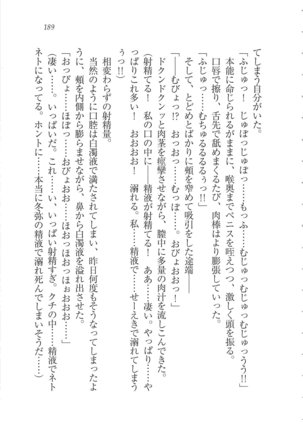 てしまう自分がいた。
「ふじゅっ！　じゅぽっじゅぽっ……もっふ……むじゅっむじゅっむじゅっうう!!」
本能に命じられるがままに、喉奥までペニスを咥えつつ、激しく頭を振る。
口唇で擦り、舌先で舐めまくるたび、肉棒はより膨張していった。
「ふじゅっ……むちゅるるるるぅっ!!」
そして、とどめとばかりに頬を窄めて吸引をした途端――
「――むぴょっ!?　おっおっ……むっぽ……。おぴょおおっ！」
ドクンドクンッと肉茎を痙攣させながら、膣中に多量の肉汁を流しこんできた。
（射精てる！　私の口の中に――精液が射精てる！　ああ……凄い。やっぱり……や
っぱりこれ多い！　おおおお！　溺れる。私……精液で……せーえきで溺れてしまう
ぅっ!!）
相変わらずの射精量。
当然のように口腔は白濁液で満たされてしまい、昨日何度もそうなってしまったよ
うに、頬を内側から膨らませながら、鼻から白濁液を溢れ出させた。
「おっぴょ……ほぽっ……おぴょおお……ほおっほおっほぉおおお……」
（凄い……。いっぱいだ。これ……い、いっぱい射精すぎ。クチの中で……精液でネト
ネトになってる。ホントに……本当に冬弥の精液で溺れ死んでしまいそうだ……）
189